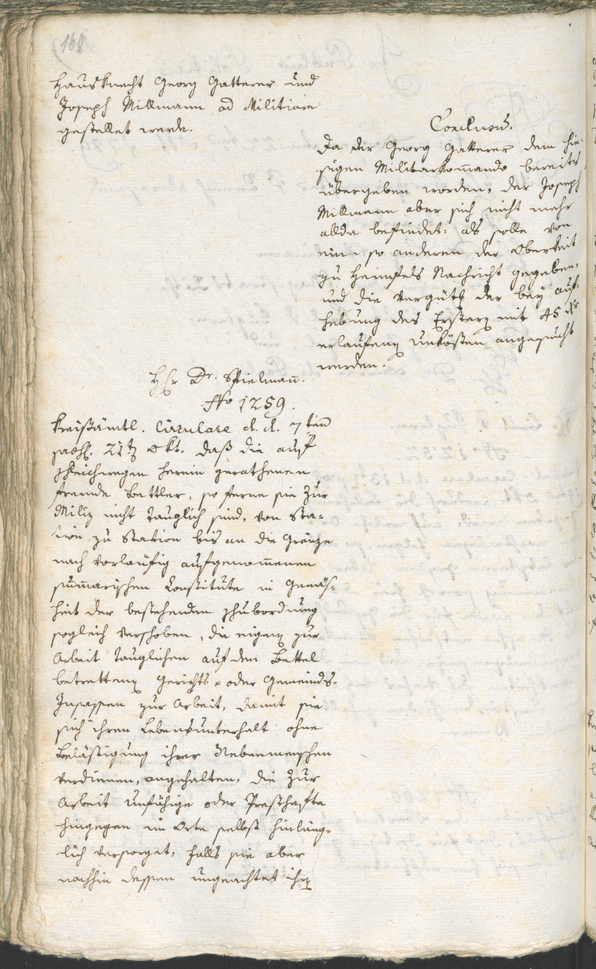 168
Hausknecht Georg Gatterer und
Joseph Millmann ad Militiam
gestellet werde.
Conclusum.
Da der Georg Gatterer dem hie-
sigen Militarkommando bereits
übergeben worden, der Joseph
Millmann aber sich nicht mehr
allda befindet: als solle von
ein- so anderen der Oberkeit
zu Heimfels Nachricht gegeben,
und die Vergütg der bey Auf-
hebung des Ersterg mit 45 xr
erlaufeng Unkösten angesucht
werden.
Hr Dr. Spielman.
No 1259.
Kreisämtl. Circulare d. d. 7ten
21t Okt. daß die auf
herein gerathenen
fremde Bettler, so ferne sie zur
Miliz nicht tauglich sind, von Sta-
tion zu Station bis an die Gränze
nach vorläufig aufgenommenen
summarischen Constitute in Gemäs-
heit der bestehenden Schubordnung
sogleich verschoben, die eigeng zur
Arbeit tauglichen auf dem Bettel
betretteng Gerichts- oder Gemeinds-
Insassen zur Arbeit, damit sie
sich ihren Lebensunterhalt ohne
Belästigung ihrer Nebenmenschen
verdienen, angehalten, die zur
Arbeit unfähige oder Presthafte
hingegen im Orte selbst hinläng-
lich versorget, falls sie aber
nachhin dessen ungeachtet ihrg